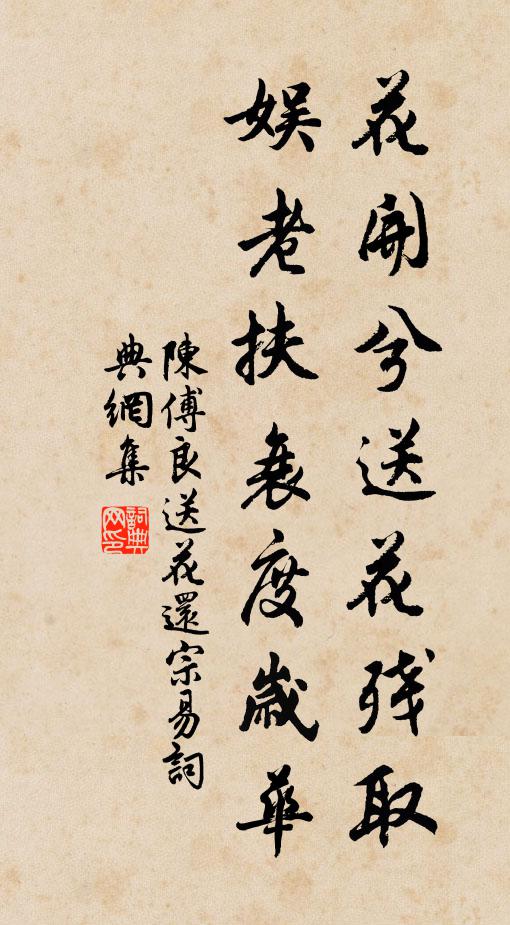 花開兮送花残取
娱老扶衰度歲華
陳傅良送花還宗易詞
典網集
詞典
网印